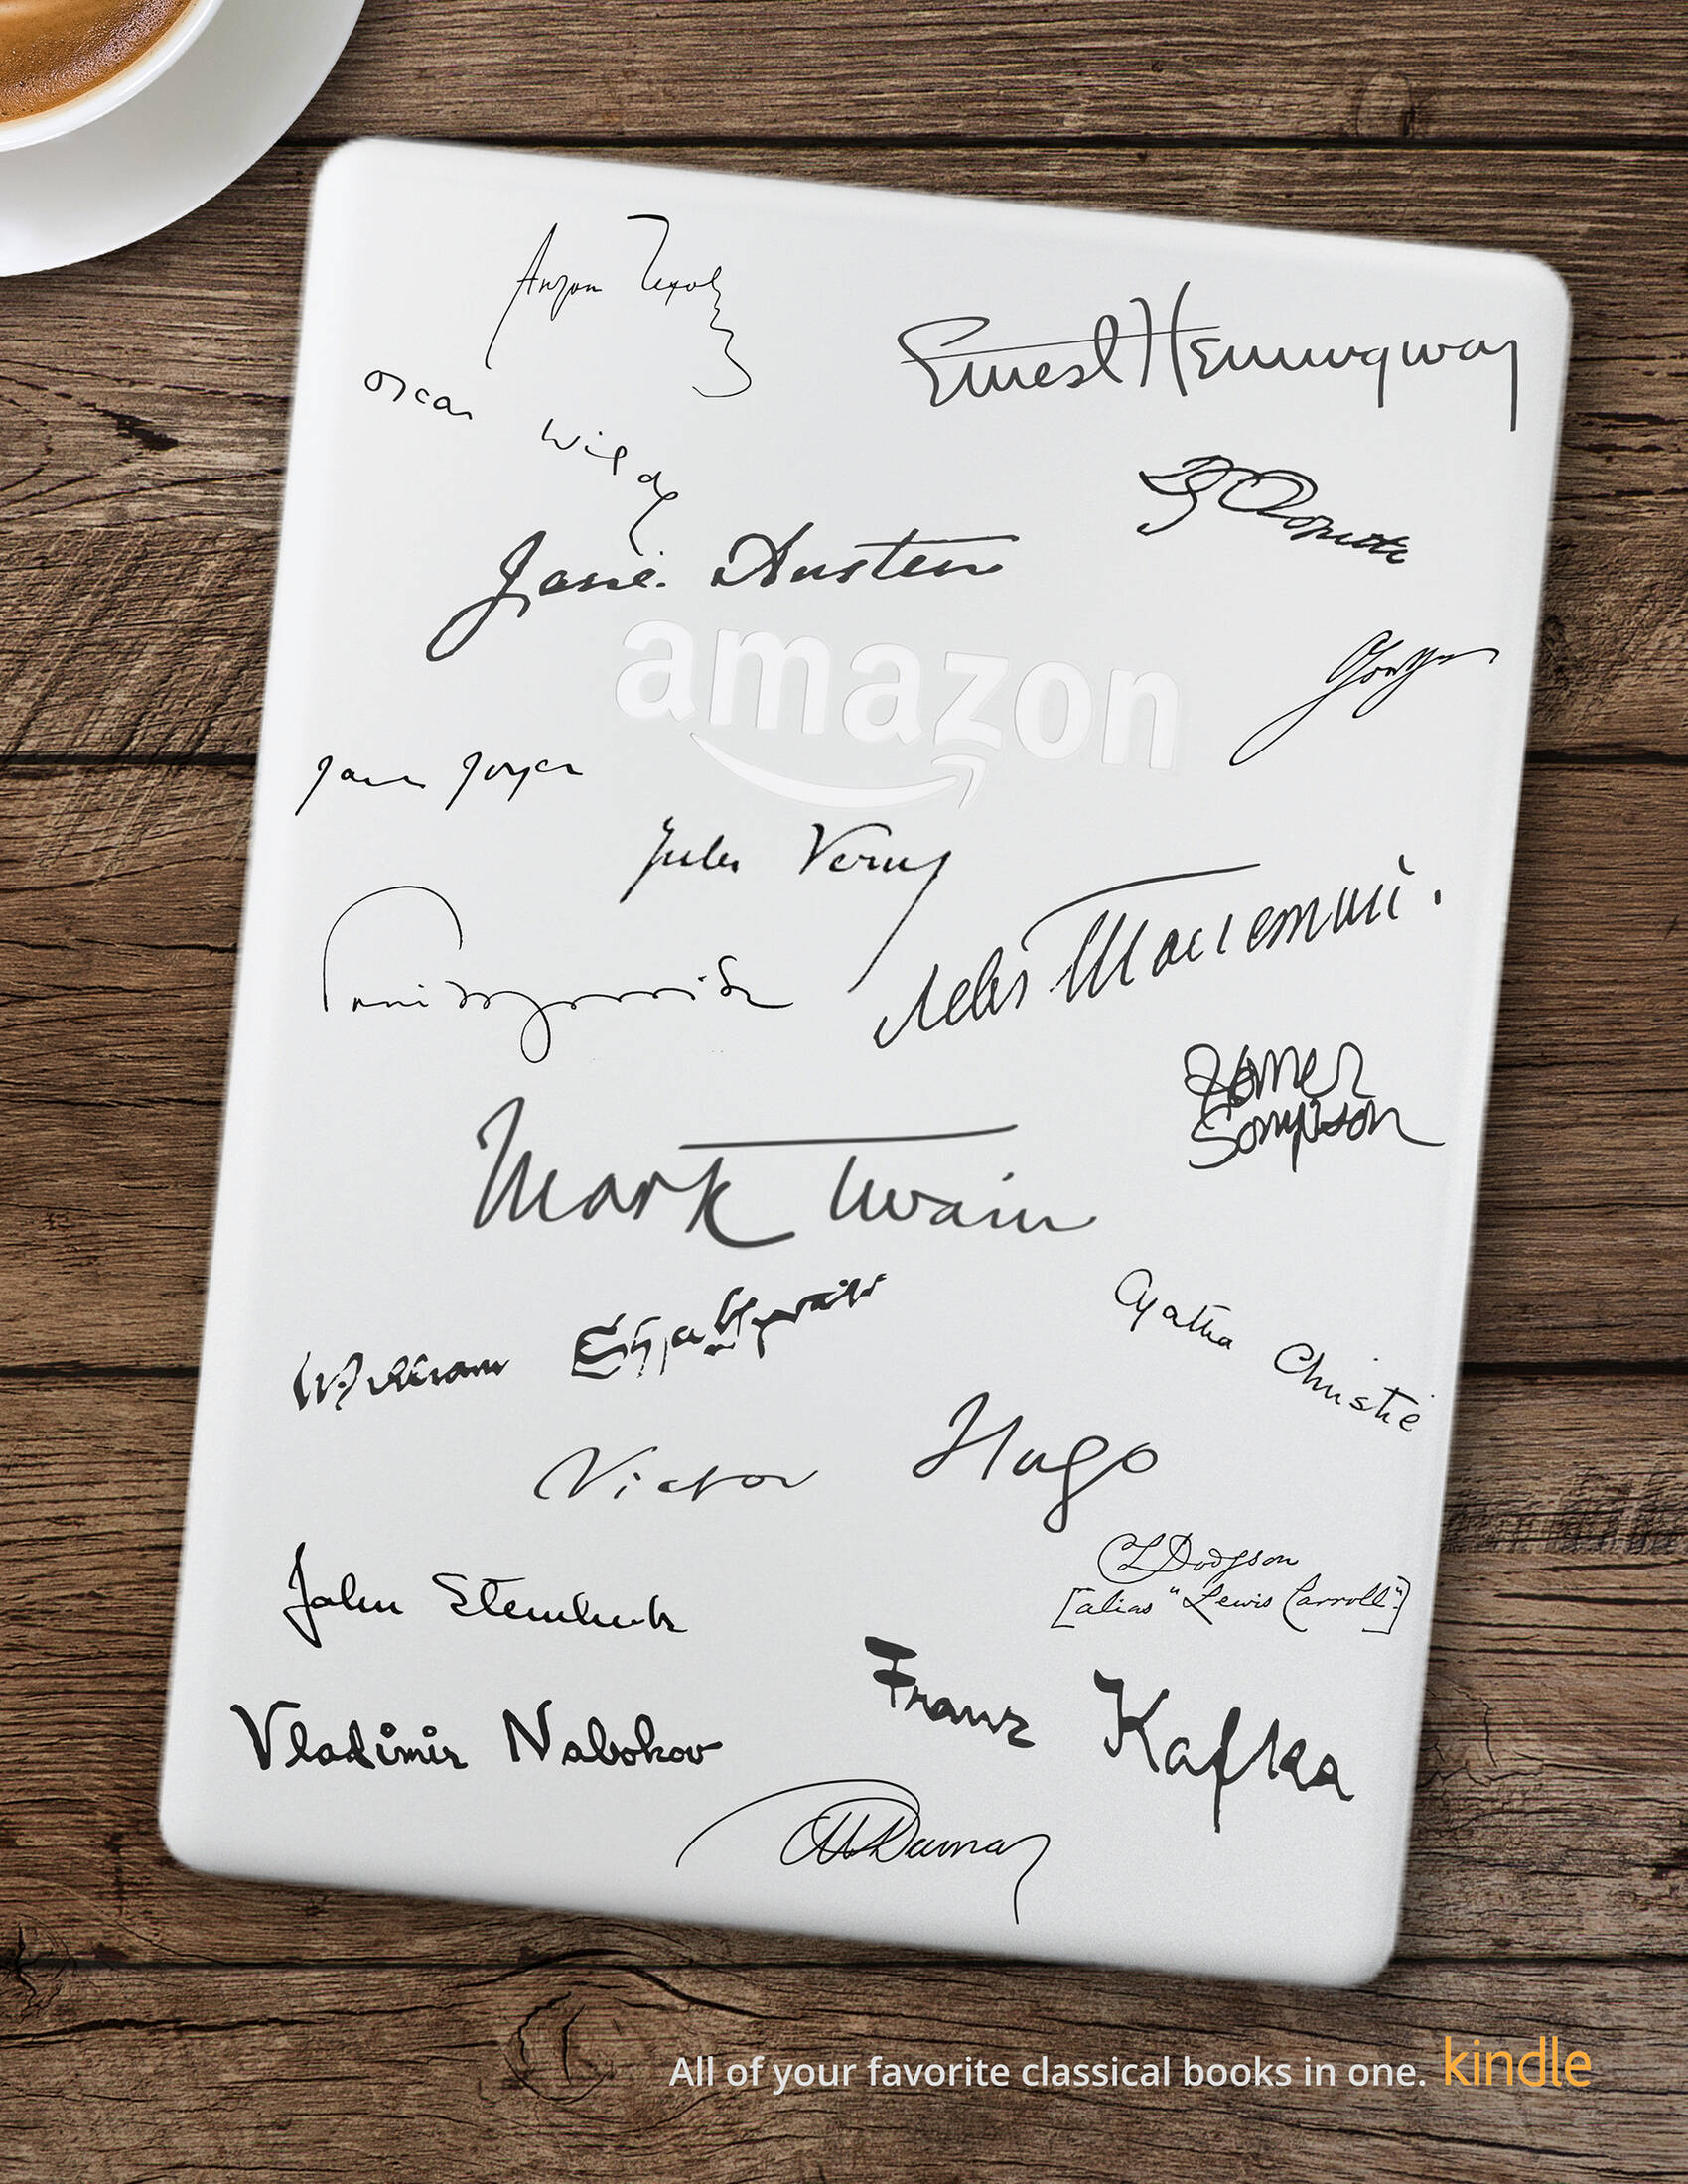 Антон Чехов
Ernest Hemingway
Oscar Wilde
Jane Austen
amazon
James Joyce
Jules Verne
Левъ Толстой.
Homer
Simpson
Mark Twain
William
Agatha Christie
Victor Hugo
CLDodgson
[alias "Lewis Carroll".]
John Steinbeck
Franz Kafka
Vladimir Nabokov
Dumas
All of your favorite classical books in one. kindle